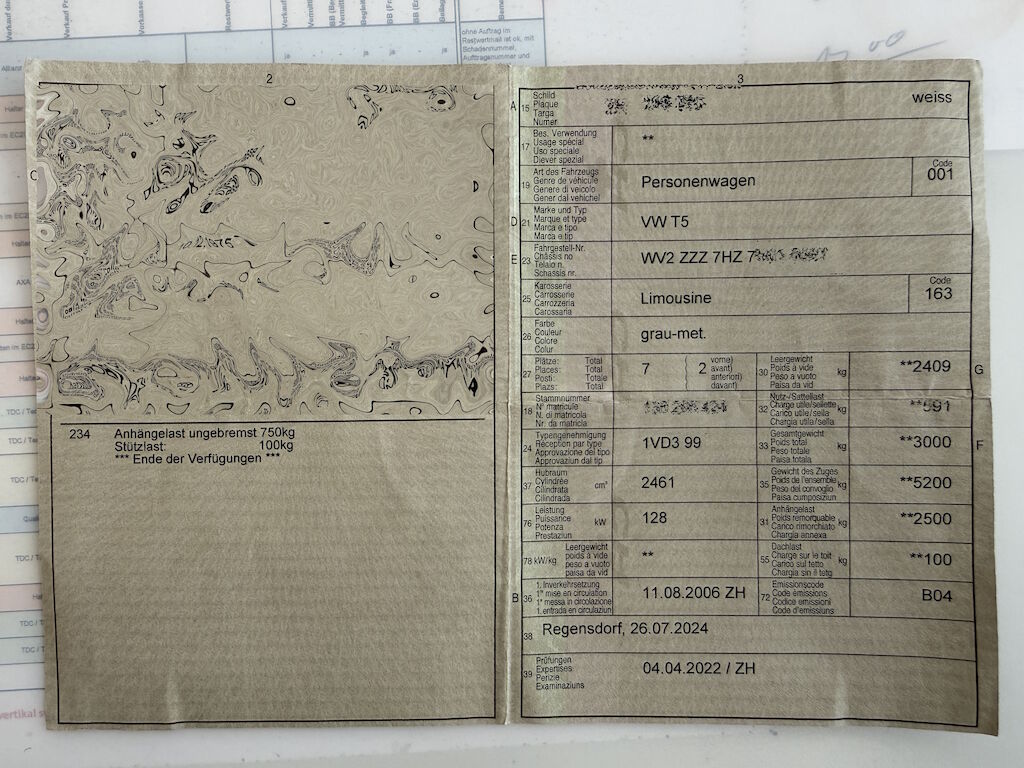 Verkauf Pr
Verkasse
Restwer
Verkauf
Vermittl
BB (Bes
Vermittl
Beglei
BB (Fr
BB (Er
Beileg
Bemer
ja
ja
ja
ja
ohne Auftrag im
Restwertmail ist ok, mit
Schadennummer,
Auftragsnummer und
Allianz
AXA
TDC / Te
TDC / Te
TDC / Te
TDC /
TDC /
vertikal s
2
C
234 Anhängelast ungebremst 750kg
Stützlast: 100kg
*** Ende der Verfügungen ***
3
A 15 Schild
Plaque
Targa
Numer
weiss
17 Bes. Verwendung
Usage spécial
Uso speciale
Diever spezial
**
19 Art des Fahrzeugs
Genre de véhicule
Genere di veicolo
Gener dal vehichel
Personenwagen
Code
001
D 21 Marke und Typ
Marque et type
Marca e tipo
Marca e tip
VW T5
E 23 Fahrgestell-Nr.
Châssis no
Telaio n.
Schassis nr.
WV2 ZZZ 7HZ 7
25 Karosserie
Carrosserie
Carrozzeria
Carossaria
Limousine
Code
163
26 Farbe
Couleur
Colore
Colur
grau-met.
27 Plätze: Total
Places: Total
Posti: Totale
Plazs: Total
7 2 vorne)
avant)
anteriori)
davant)
30 Leergewicht
Poids à vide
Peso a vuoto
Paisa da vid
kg
**2409
G
18 Stammnummer
N° matricule
N. di matricola
Nr. da matricla
32 Nutz-/Sattellast
Charge utile/sellette
Carico utile/sella
Chargia utila/sella
kg
**591
24 Typengenehmigung
Réception par type
Approvazione del tipo
Approvaziun dal tip
1VD3 99
33 Gesamtgewicht
Poids total
Peso totale
Paisa totala
kg
**3000
F
37 Hubraum
Cylindrée
Cilindrata
Cilindrada
cm³
2461
35 Gewicht des Zuges
Poids de l'ensemble
Peso del convoglio
Paisa cumposiziun
kg
**5200
76 Leistung
Puissance
Potenza
Prestaziun
kW
128
31 Anhängelast
Poids remorquable
Carico rimorchiato
Chargia annexa
kg
**2500
78 kW/kg Leergewicht
poids à vide
peso a vuoto
paisa da vid
**
55 Dachlast
Charge sur le toit
Carico sul tetto
Chargia sin il tetg
kg
**100
B 36 1. Inverkehrsetzung
1re mise en circulation
1a messa in circolazione
1. entrada en circulaziun
11.08.2006 ZH
72 Emissionscode
Code émissions
Codice emissioni
Code d'emissiuns
B04
38 Regensdorf, 26.07.2024
39 Prüfungen
Expertises
Perizie
Examinaziuns
04.04.2022 / ZH